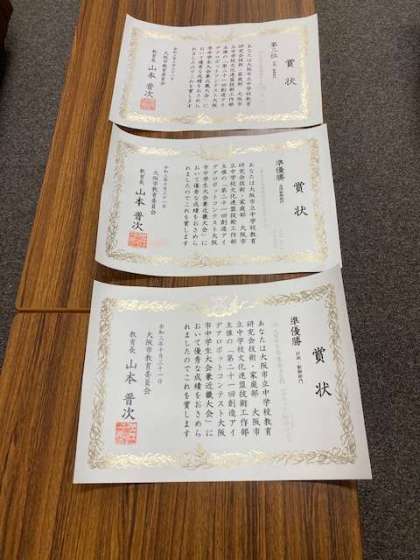 賞状
第三位
あなたは大阪市立中学校教育
研究会技術・家庭部 大阪市
立中学校文化連盟技術工作部
主催の「第二十一回創造アイ
デアロボットコンテスト大阪
市中学生大会兼近畿大会」に
おいて優秀な成績をおさめら
れましたのでこれを賞します
大阪市教育委員会
教育長 山本晋次
賞状
準優勝
あなたは大阪市立中学校教育
研究会技術・家庭部 大阪市
立中学校文化連盟技術工作部
主催の「第二十一回創造アイ
デアロボットコンテスト大阪
市中学生大会兼近畿大会」に
おいて優秀な成績をおさめら
れましたのでこれを賞します
大阪市教育委員会
教育長 山本晋次
賞状
準優勝 計測・制御部門
あなたは大阪市立中学校教育
研究会技術・家庭部 大阪市
立中学校文化連盟技術工作部
主催の「第二十一回創造アイ
デアロボットコンテスト大阪
市中学生大会兼近畿大会」に
おいて優秀な成績をおさめら
れましたのでこれを賞します
大阪市教育委員会
教育長 山本晋次